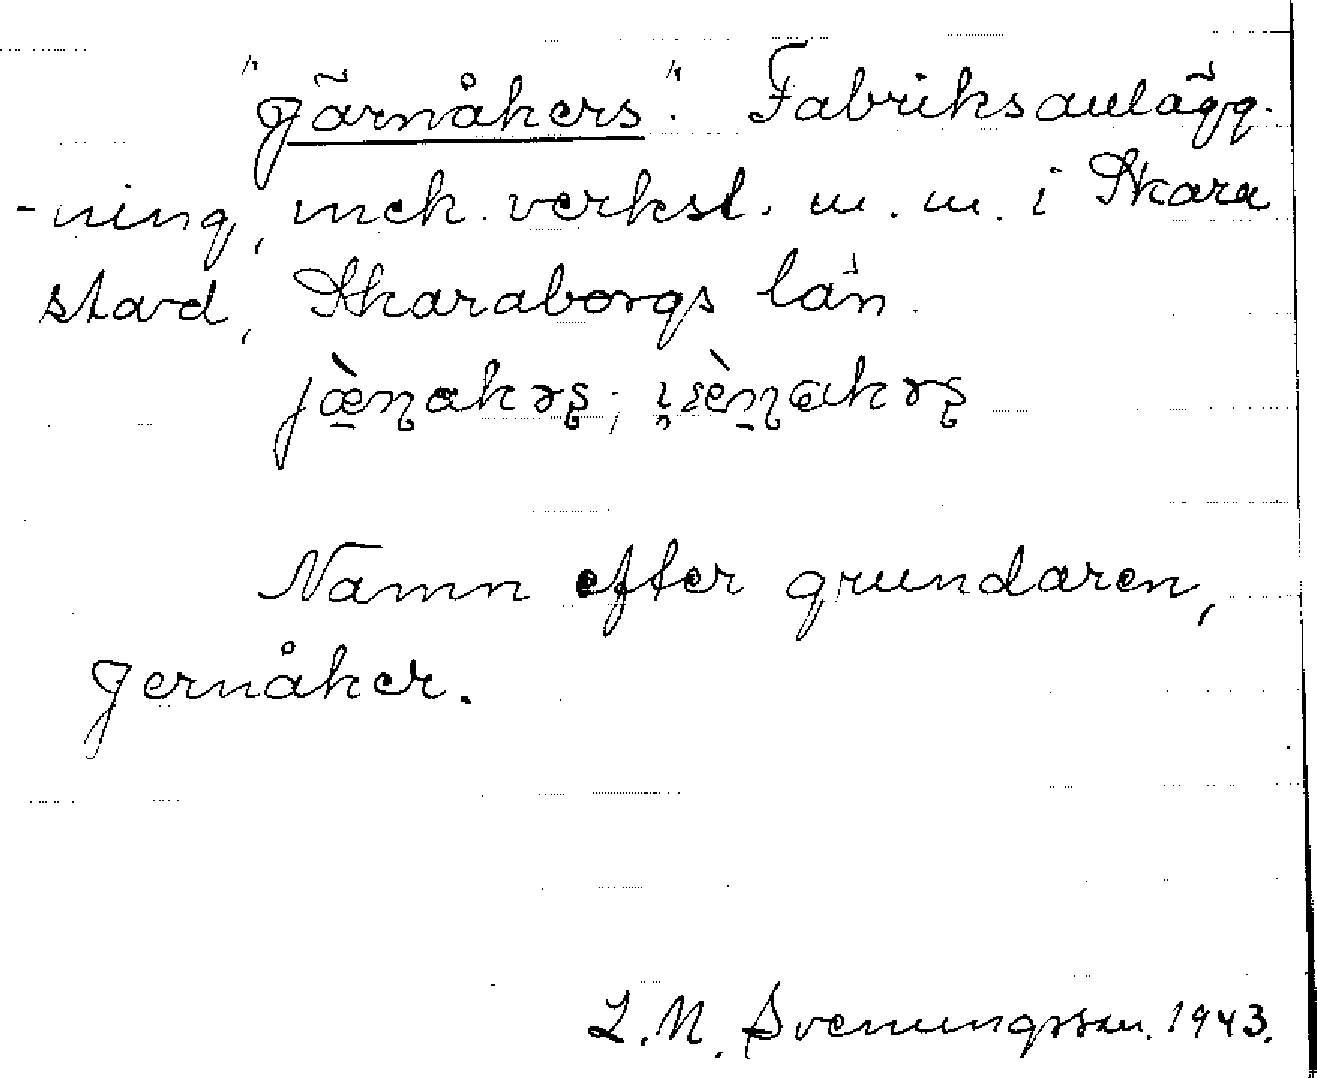 "Järnåkers". Fabriksanlägg-
-ning, mek. verkst. m. m. i Skara
stad, Skaraborgs län.
Namn efter grundaren,
Jernåker.
L. M. Svenungsson. 1943.